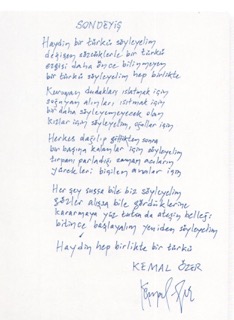 SONDEYİŞ
Haydin bir türkü söyleyelim
değişen sözcüklerle bir türkü
ezgisi daha önce bilinmeyen
bir türkü söyleyelim hep birlikte
Kuruyan dudakları ıslatmak için
soğuyan alınları ısıtmak için
bir daha söyleyemeyecek olan
kızlar için söyleyelim, oğullar için
Herkes dağılıp gittikten sonra
bir başına kalanlar için söyleyelim
tırpanı parladığı zaman acıların
yürekleri biçilen analar için
Her şey sussa bile biz söyleyelim
gözler alışsa bile gördüklerine
kararmaya yüz tutsa da ateşin belleği
bitince başlayalım yeniden söyleyelim
Haydin hep birlikte bir türkü
KEMAL ÖZER
Kemal Özer